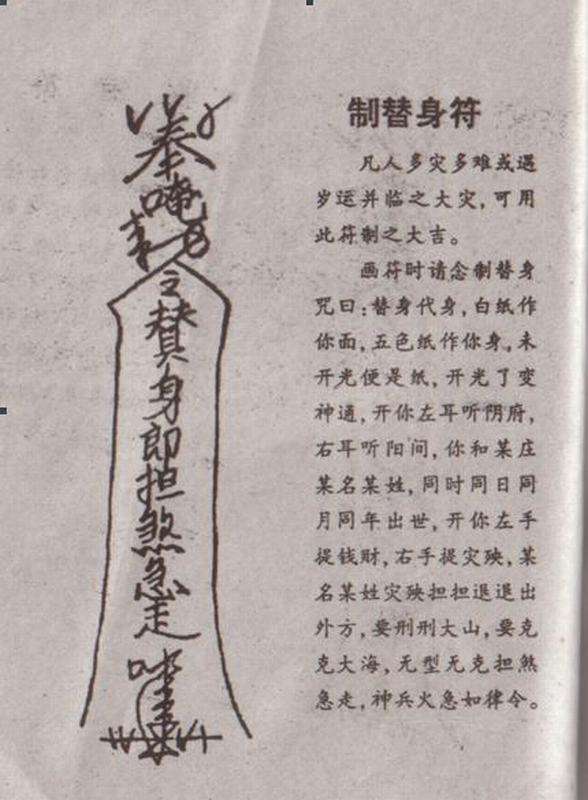 奉
唵
令
替身即担煞急走
制替身符
凡人多灾多难或遇
岁运并临之大灾,可用
此符制之大吉。
画符时请念制替身
咒曰:替身代身,白纸作
你面,五色纸作你身,未
开光便是纸,开光了变
神通,开你左耳听阴府,
右耳听阳间,你和某庄
某名某姓,同时同日同
月同年出世,开你左手
提钱财,右手提灾殃,某
名某姓灾殃担担退退出
外方,要刑刑大山,要克
克大海,无型无克担煞
急走,神兵火急如律令。